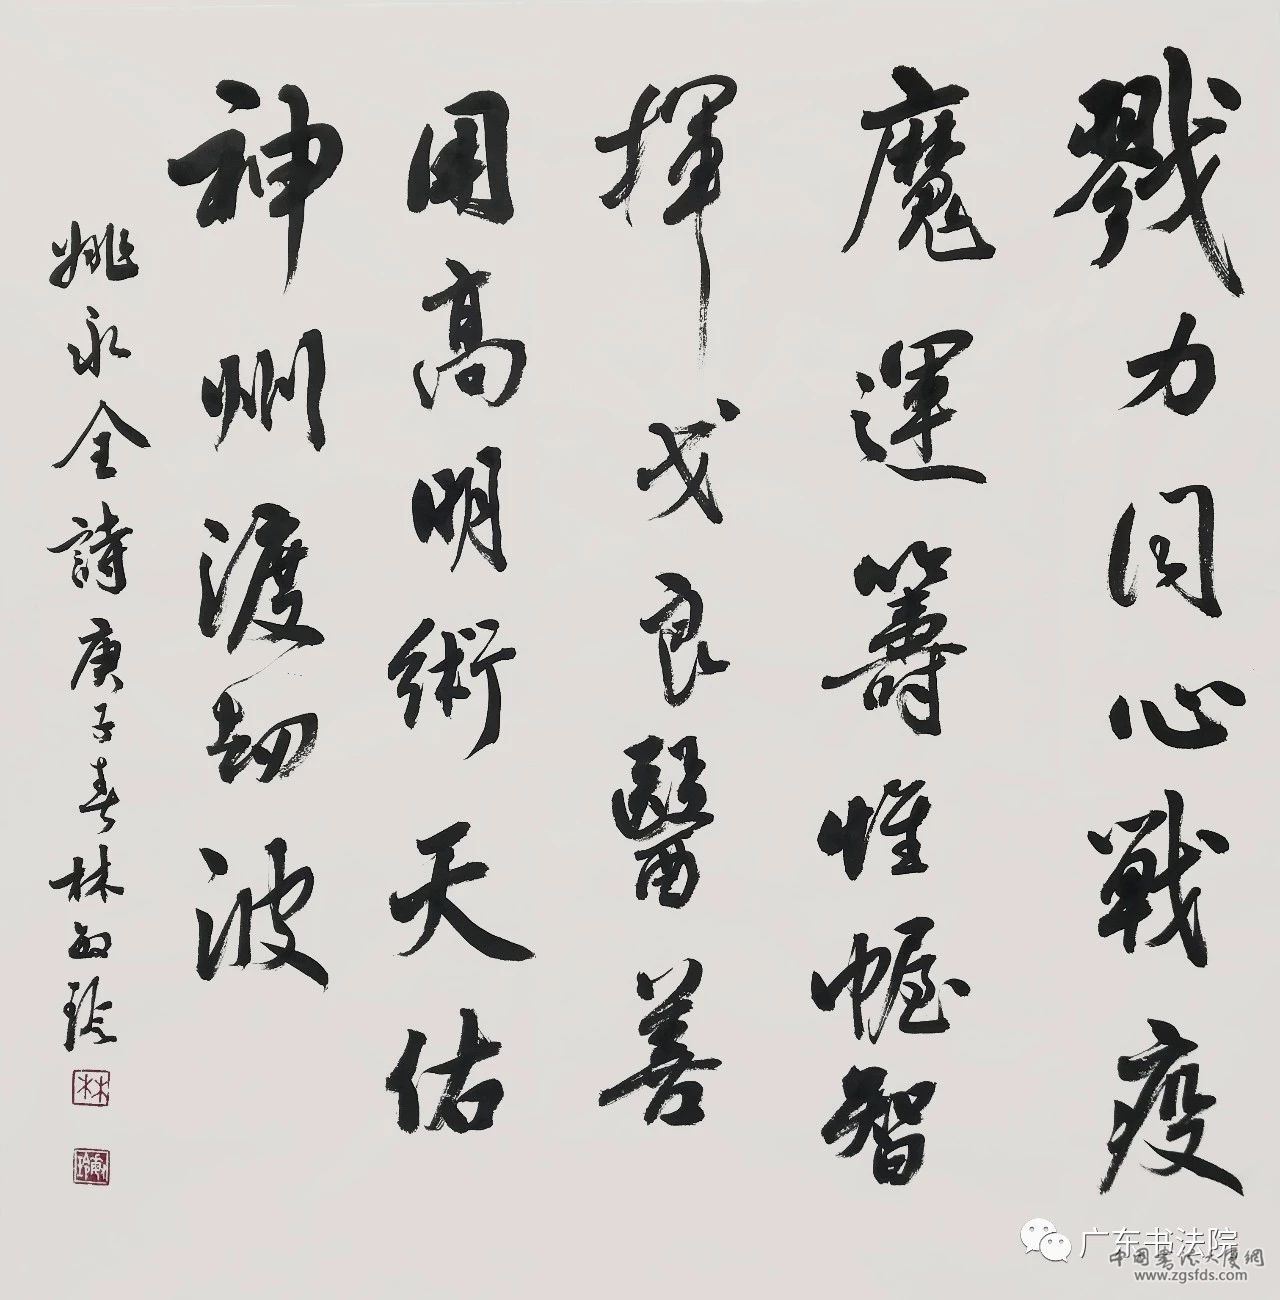 戮力同心戰疫
魔運籌惟幄智
揮戈良醫善
用高明術天佑
神州渡劫波
姚永全詩庚子春林敏玲
林
敏玲
广东书法院
中国书法大厦網
www.zgsfds.com